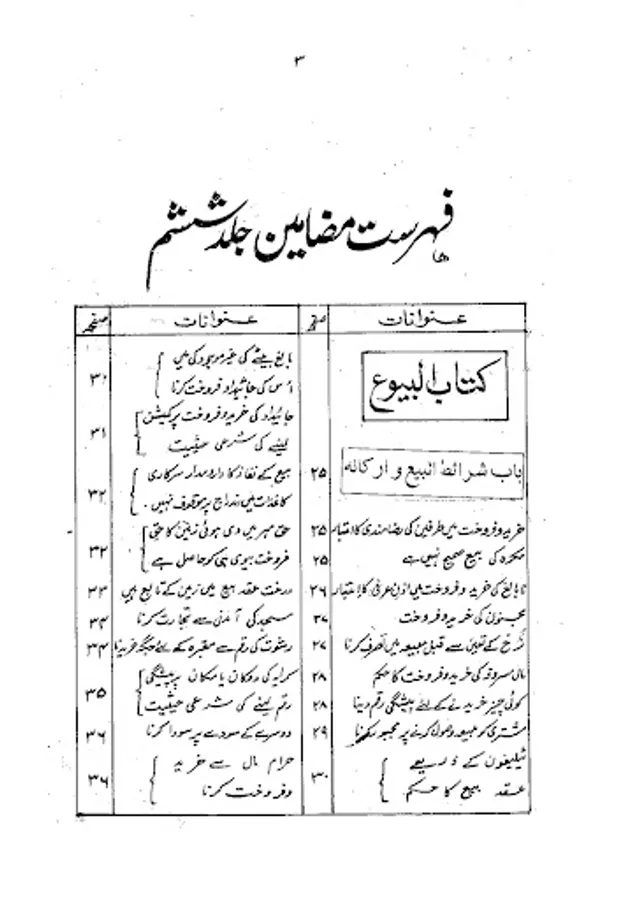 ۳
فہرست مضامین جلد ششم
عنوانات
صفحہ
کتاب البیوع
باب شرائط البیع وارکانہ ۲۵
خرید و فروخت میں طرفین کی رضامندی کا اعتبار ۲۵
مکرہ کی بیع صحیح نہیں ہے ۲۵
نابالغ کی خرید و فروخت میں اذن عرفی کا اعتبار ۲۶
مجنون کی خرید و فروخت ۲۷
نرخ کے تعین سے قبل مبیعہ میں تصرف کرنا ۲۷
مال سروقہ کی خرید و فروخت کا حکم ۲۸
کوئی چیز خریدنے کے لئے پیشگی رقم دینا ۲۸
مشتری کو مبیعہ وصول کرنے پر مجبور کرنا ۲۹
ٹیلیفون کے ذریعے
عقد بیع کا حکم ۳۰
عنوانات
صفحہ
بالغ بیٹے کی غیر موجودگی میں
اس کی جائیداد فروخت کرنا ۳۰
جائیداد کی خرید و فروخت پر کمیشن
لینے کی شرعی حیثیت ۳۱
بیع کے نفاذ کا دارومدار سرکاری
کاغذات میں اندراج پر موقوف نہیں ۔ ۳۲
حق مہر میں دی ہوئی زمین کا حق
فروخت بیوی ہی کو حاصل ہے ۳۲
درخت عقد بیع میں زمین کے تابع ہیں ۳۳
مسجد کی آمدنی سے تجارت کرنا ۳۴
رشوت کی رقم سے مقبرہ کے لئے جگہ خریدنا ۳۴
کرایہ کی دوکان یا مکان پر پیشگی
رقم لینے کی شرعی حیثیت ۳۵
دوسرے کے سودے پر سودا کرنا ۳۶
حرام مال سے خرید
و فروخت کرنا ۳۶